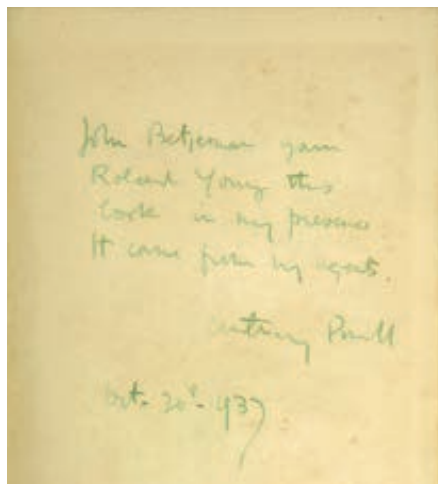 John Betjeman gave
Roland Young this
book in my presence
It came from my agents.
Anthony Powell
Oct. 20. 1937